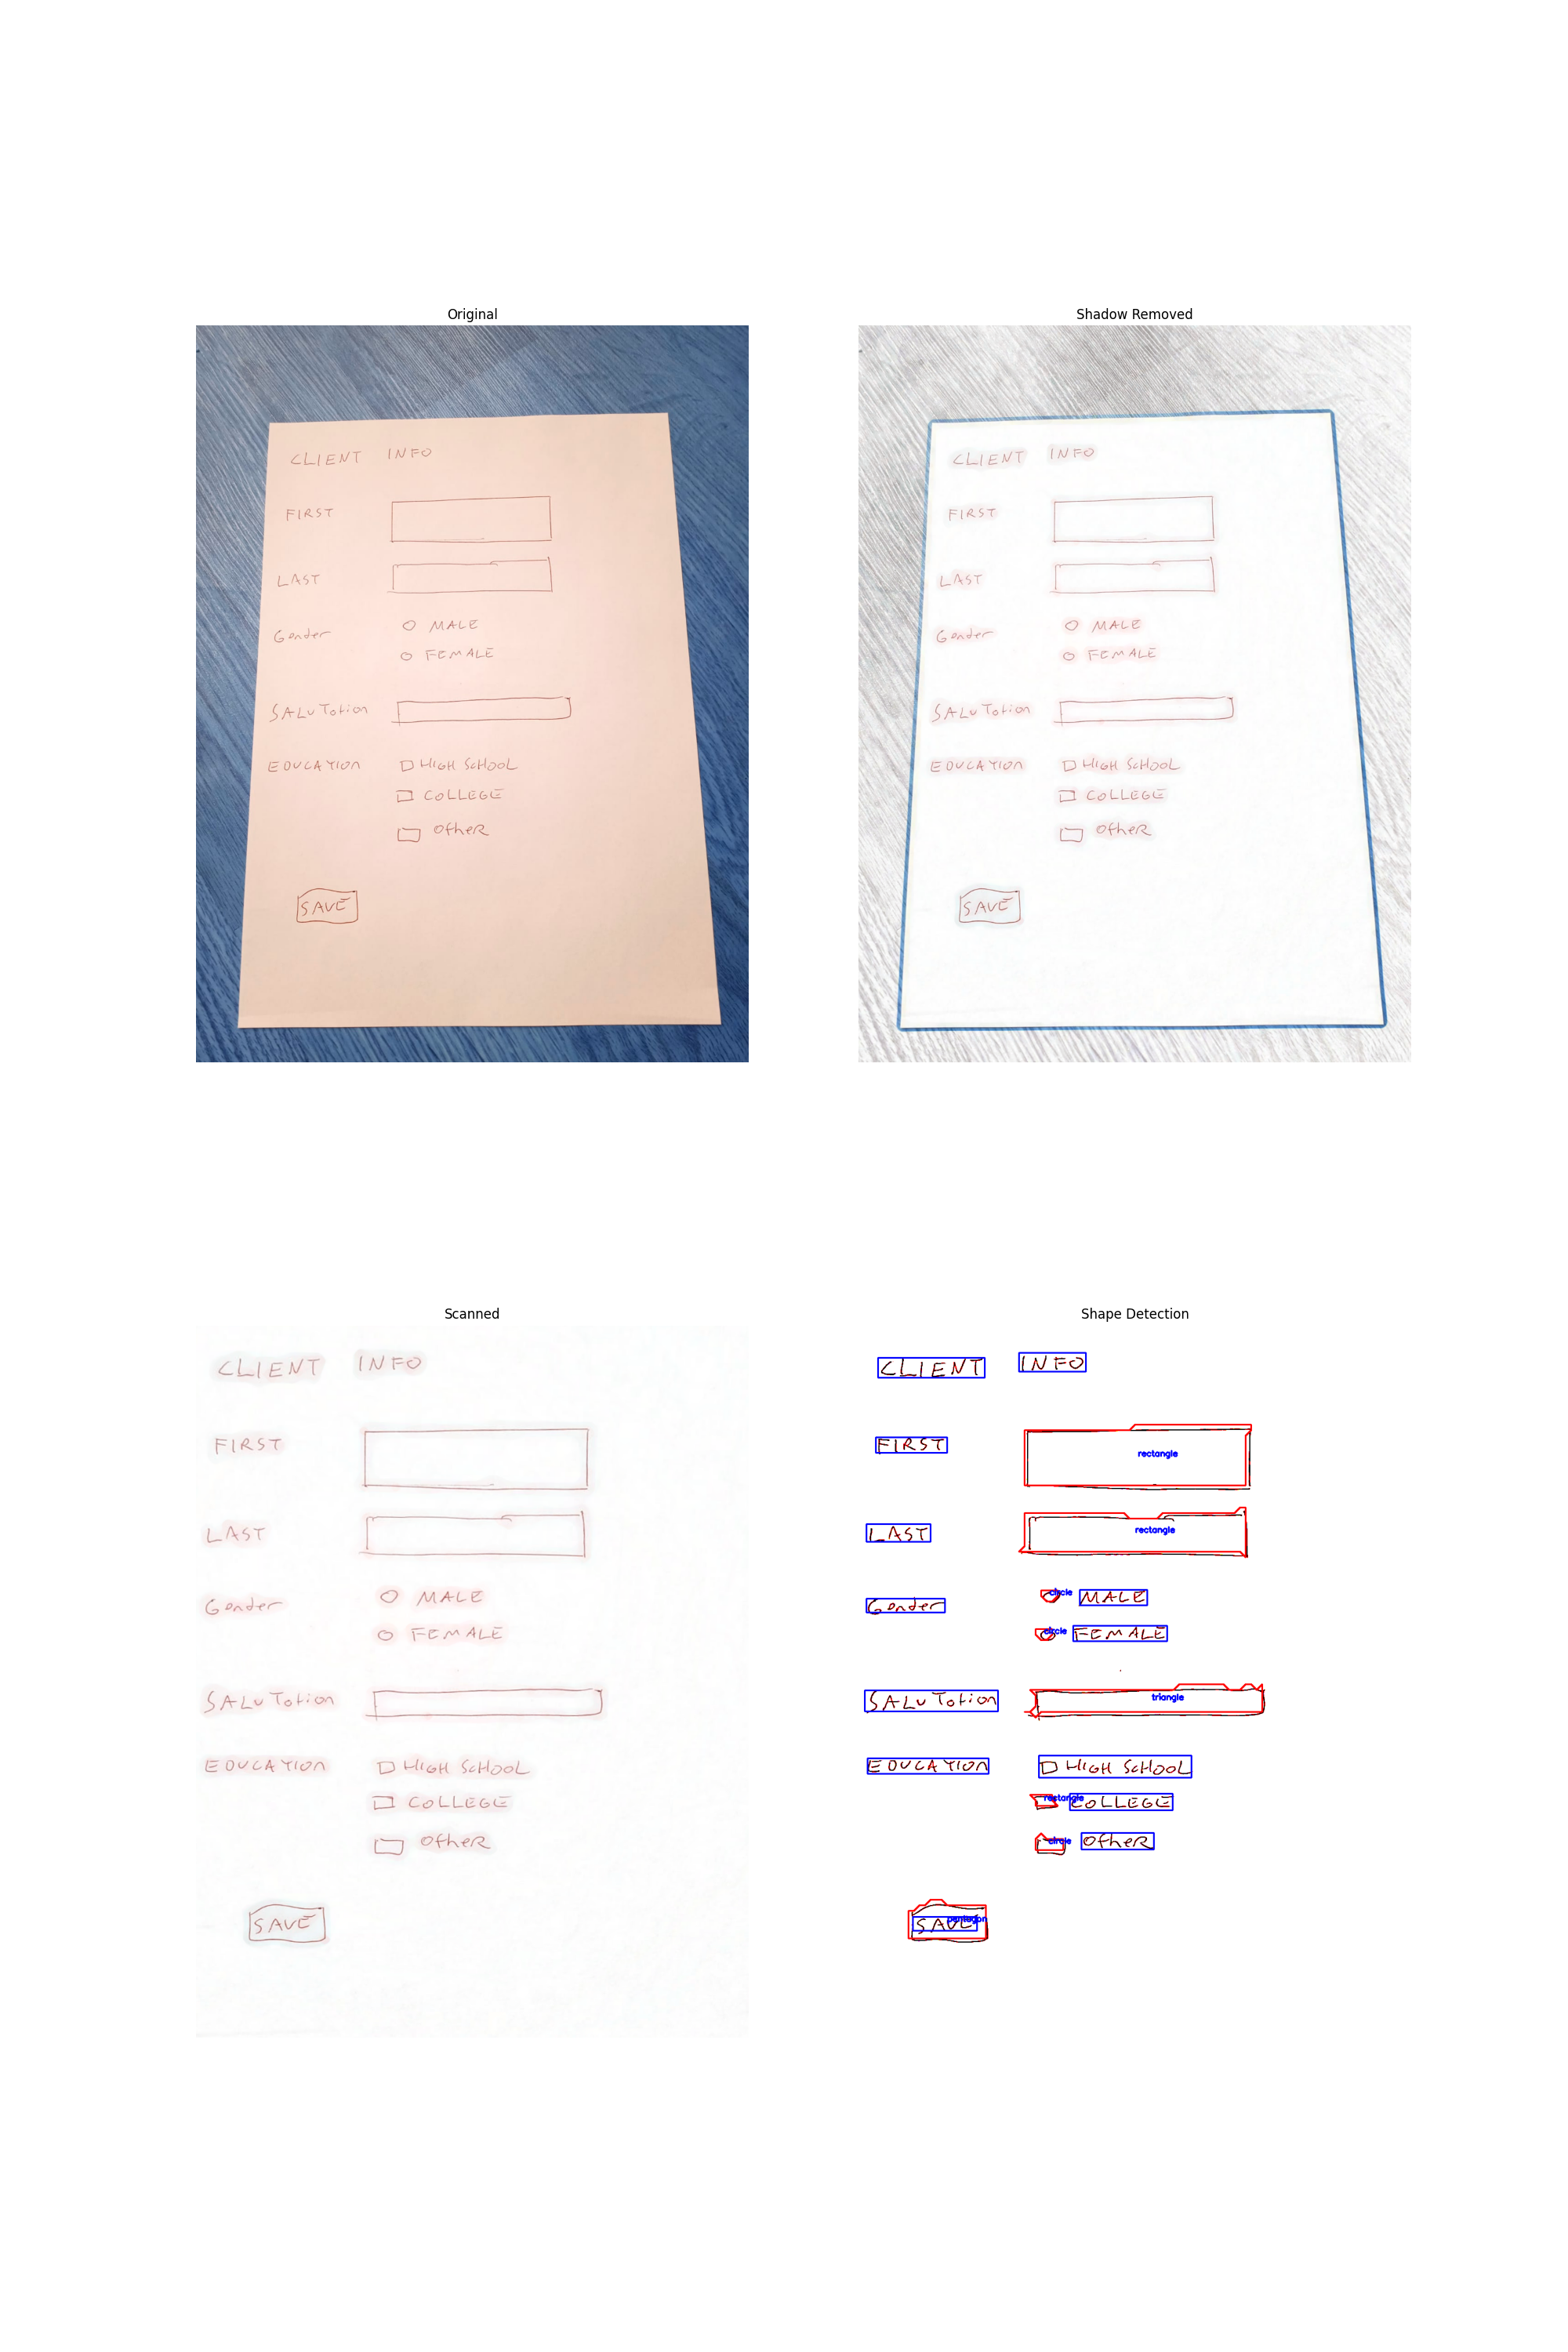 Original
CLIENT INFO
FIRST
LAST
Gender
MALE
FEMALE
SALuTotion
EDUCATION
HIGH SCHOOL
COLLEGE
OtheR
SAVE
Shadow Removed
CLIENT INFO
FIRST
LAST
Gender
MALE
FEMALE
SALuTotion
EDUCATION
HIGH SCHOOL
COLLEGE
OtheR
SAVE
Scanned
CLIENT INFO
FIRST
LAST
Gender
MALE
FEMALE
SALuTotion
EDUCATION
HIGH SCHOOL
COLLEGE
OtheR
SAVE
Shape Detection
CLIENT INFO
FIRST
rectangle
LAST
rectangle
Gender
circle
MALE
circle
FEMALE
SALuTotion
triangle
EDUCATION
HIGH SCHOOL
rectangle
COLLEGE
circle
OtheR
SAVE
pentagon